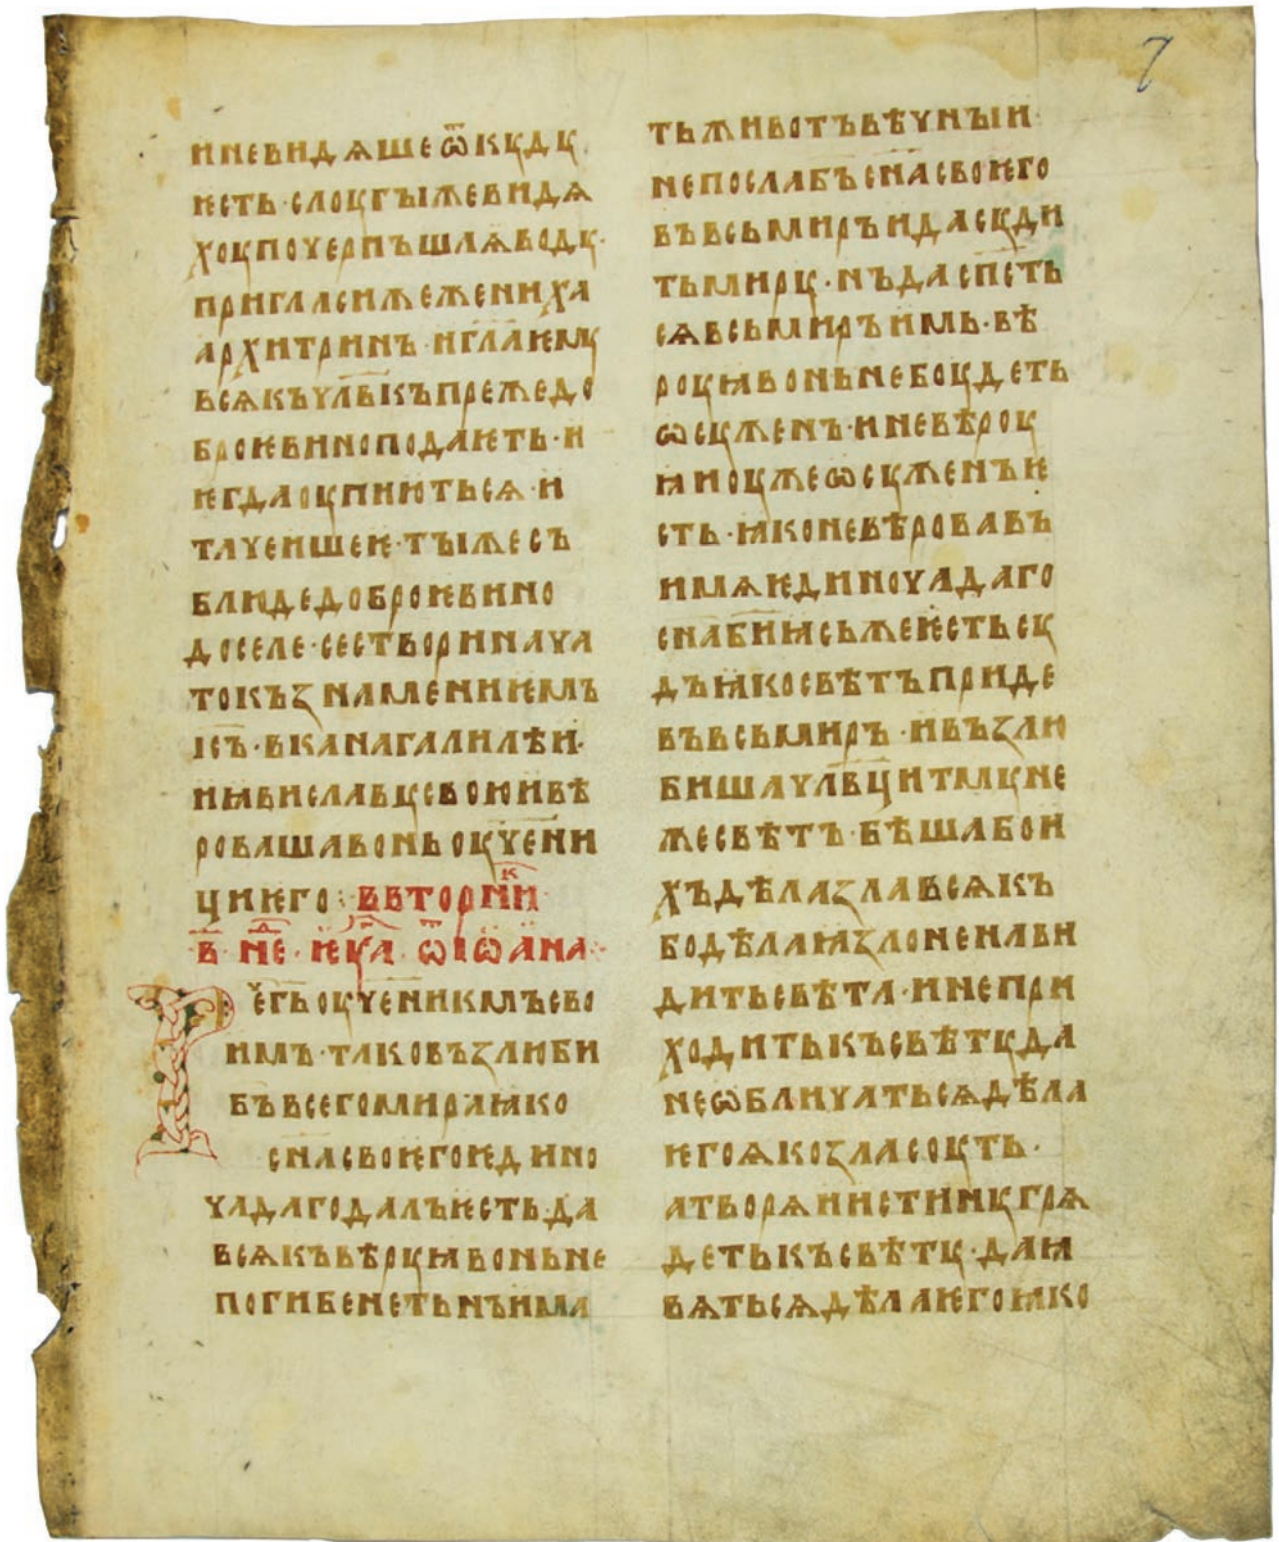 7
и невидѧше ѿкꙋдꙋ
ѥсть · слоугꙑжевидѧ
хоупочерпъшаѧводꙋ ·
пригласижеженнха
архитринъ · игл҃аѥмꙋ
всѧкъчл҃вкъпрежедо
броѥвиноподаѥть · и
ѥгдаоупиютьсѧ · и
тачеишеѥ · тꙑжесъ
блюдедоброѥвино
доселе · сестворинача
токъꙁнамениѥмъ
іс҃ъ · вканагалилѣи ·
иꙗвиславꙋсвоюивѣ
ровашавоньоуч҃ени
циѥго : ввторни҃к
в҃ · н҃де · ѥу҃а · ѿ іѡана ·
Рече҃гьоуч҃еникмъсво
имъ · таковъꙁлюби
бъвсегомираꙗко
сн҃асвоѥгоѥдино
чадагодалъѥсть · да
всѧкъвѣрꙋꙗвоньне
погибенетьнъима
тьживотъвѣчнꙑи
непослабъсн҃асвоѥго
въвсьмиръидасꙋди
тьмирꙋ · нъдасп҃сть
сѧвсьмиръимь · вѣ
роуꙗвоньнебоудеть
ѡсꙋженъ · иневѣроу
ꙗиоужеѡсꙋженъѥ
сть · ꙗконевѣровавъ
имѧѥдиночадаго
сн҃аб҃иꙗсьжеѥстьсꙋ
дъꙗкосвѣтъприде
въвсьмиръ · ивъꙁлю
бишачл҃вцитмꙋне
жесвѣтъ · бѣшабои
хъдѣлаꙁлавсѧкъ
бодѣлаꙗꙁлоненави
дитьсвѣта · инепри
ходитькъсвѣтꙋда
неѡбличатьсѧдѣла
ѥгоѧкоꙁласоуть ·
атворѧиистинꙋгрѧ
детькъсвѣтꙋ · даꙗ
вѧтьсѧдѣлаѥгоꙗко